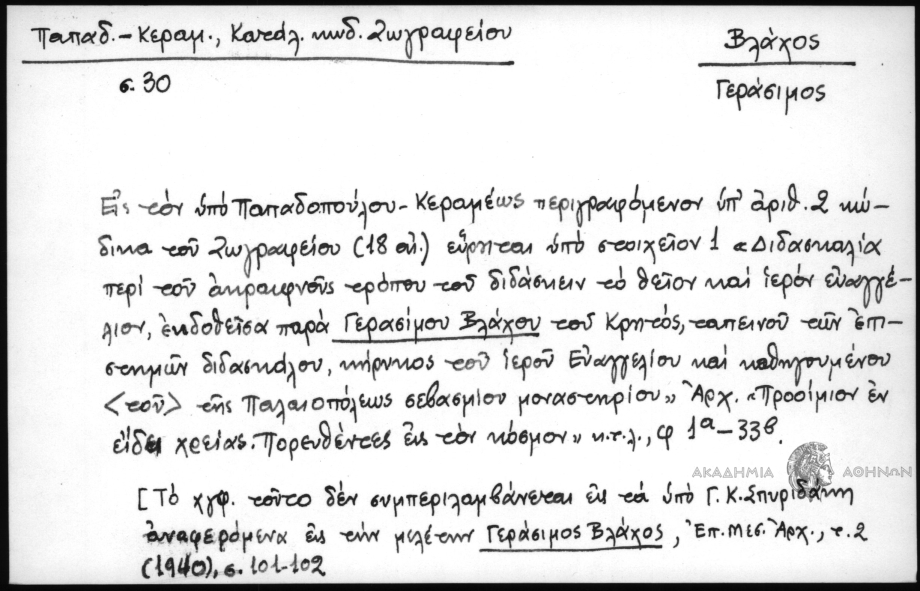 Παπαδ.-Κεραμ., Κατάλ. κωδ. Ζωγραφείου
Βλάχος
σ. 30
Γεράσιμος
Εἰς τὸν ὑπὸ Παπαδοπούλου-Κεραμέως περιγραφόμενον ὑπ' ἀριθ. 2 κώ-
δικα τοῦ Ζωγραφείου (18 αἰ.) εὕρηται ὑπὸ στοιχεῖον 1 «Διδασκαλία
περὶ τοῦ ἀκραιφνοῦς τρόπου τοῦ διδάσκειν τὸ θεῖον καὶ ἱερὸν εὐαγγέ-
λιον, ἐκδοθεῖσα παρὰ Γερασίμου Βλάχου τοῦ Κρητός, ταπεινοῦ τῶν ἐπι-
στημῶν διδασκάλου, κήρυκος τοῦ ἱεροῦ Εὐαγγελίου καὶ καθηγουμένου
<τοῦ> τῆς Παλαιοπόλεως σεβασμίου μοναστηρίου» Ἀρχ. «Προοίμιον ἐν
εἴδει χρείας. Πορευθέντες εἰς τὸν κόσμον» κ.τ.λ., φ 1α-33β.
ΑΚΑΔΗΜΙΑ ΑΘΗΝΩΝ
[Τὸ χγφ. τοῦτο δὲν συμπεριλαμβάνεται εἰς τὰ ὑπὸ Γ. Κ. Σπυριδάκη
ἀναφερόμενα εἰς τὴν μελέτην Γεράσιμος Βλάχος, Ἐπ. Μεσ. Ἀρχ., τ. 2
(1940), σ. 101-102